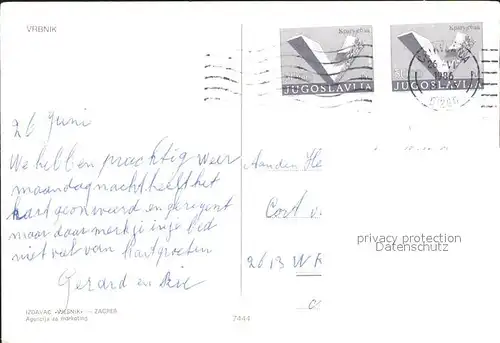 VRBNIK
JUGOSLAVIJA
JUGOSLAVIJA
1986
26 Juni
We hebben prachtig weer
maandagnacht heeft het
hard geonweerd en geregent
maar daar merk je in je bed
niet veel van Hartgroeten
Gerard en
Aan den He
Cort v
2613 W
privacy protection
Datenschutz
IZDAVAČ »VJESNIK« — ZAGREB
Agencija za marketing
7444